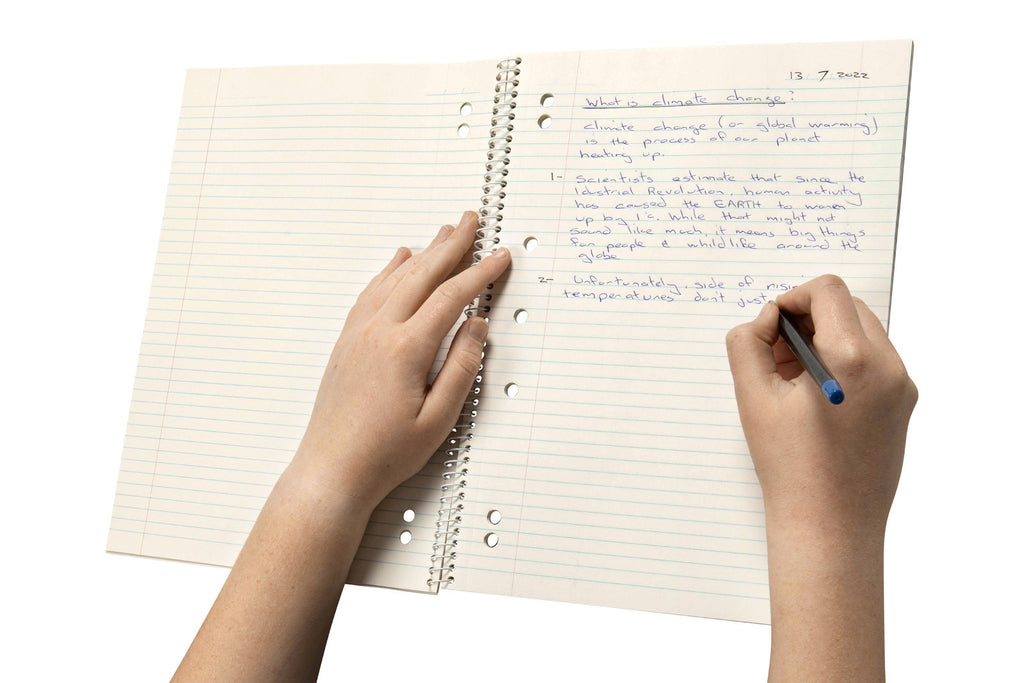 13 7 2022
What is climate change?
climate change (or global warming)
is the process of our planet
heating up.
1- Scientists estimate that since the
Idustrial Revolution, human activity
has caused the EARTH to warm
up by 1°c. While that might not
sound like much, it means big things
for people & whildlife around the
globe
2- Unfortunately, side of risi
temperatures don't just